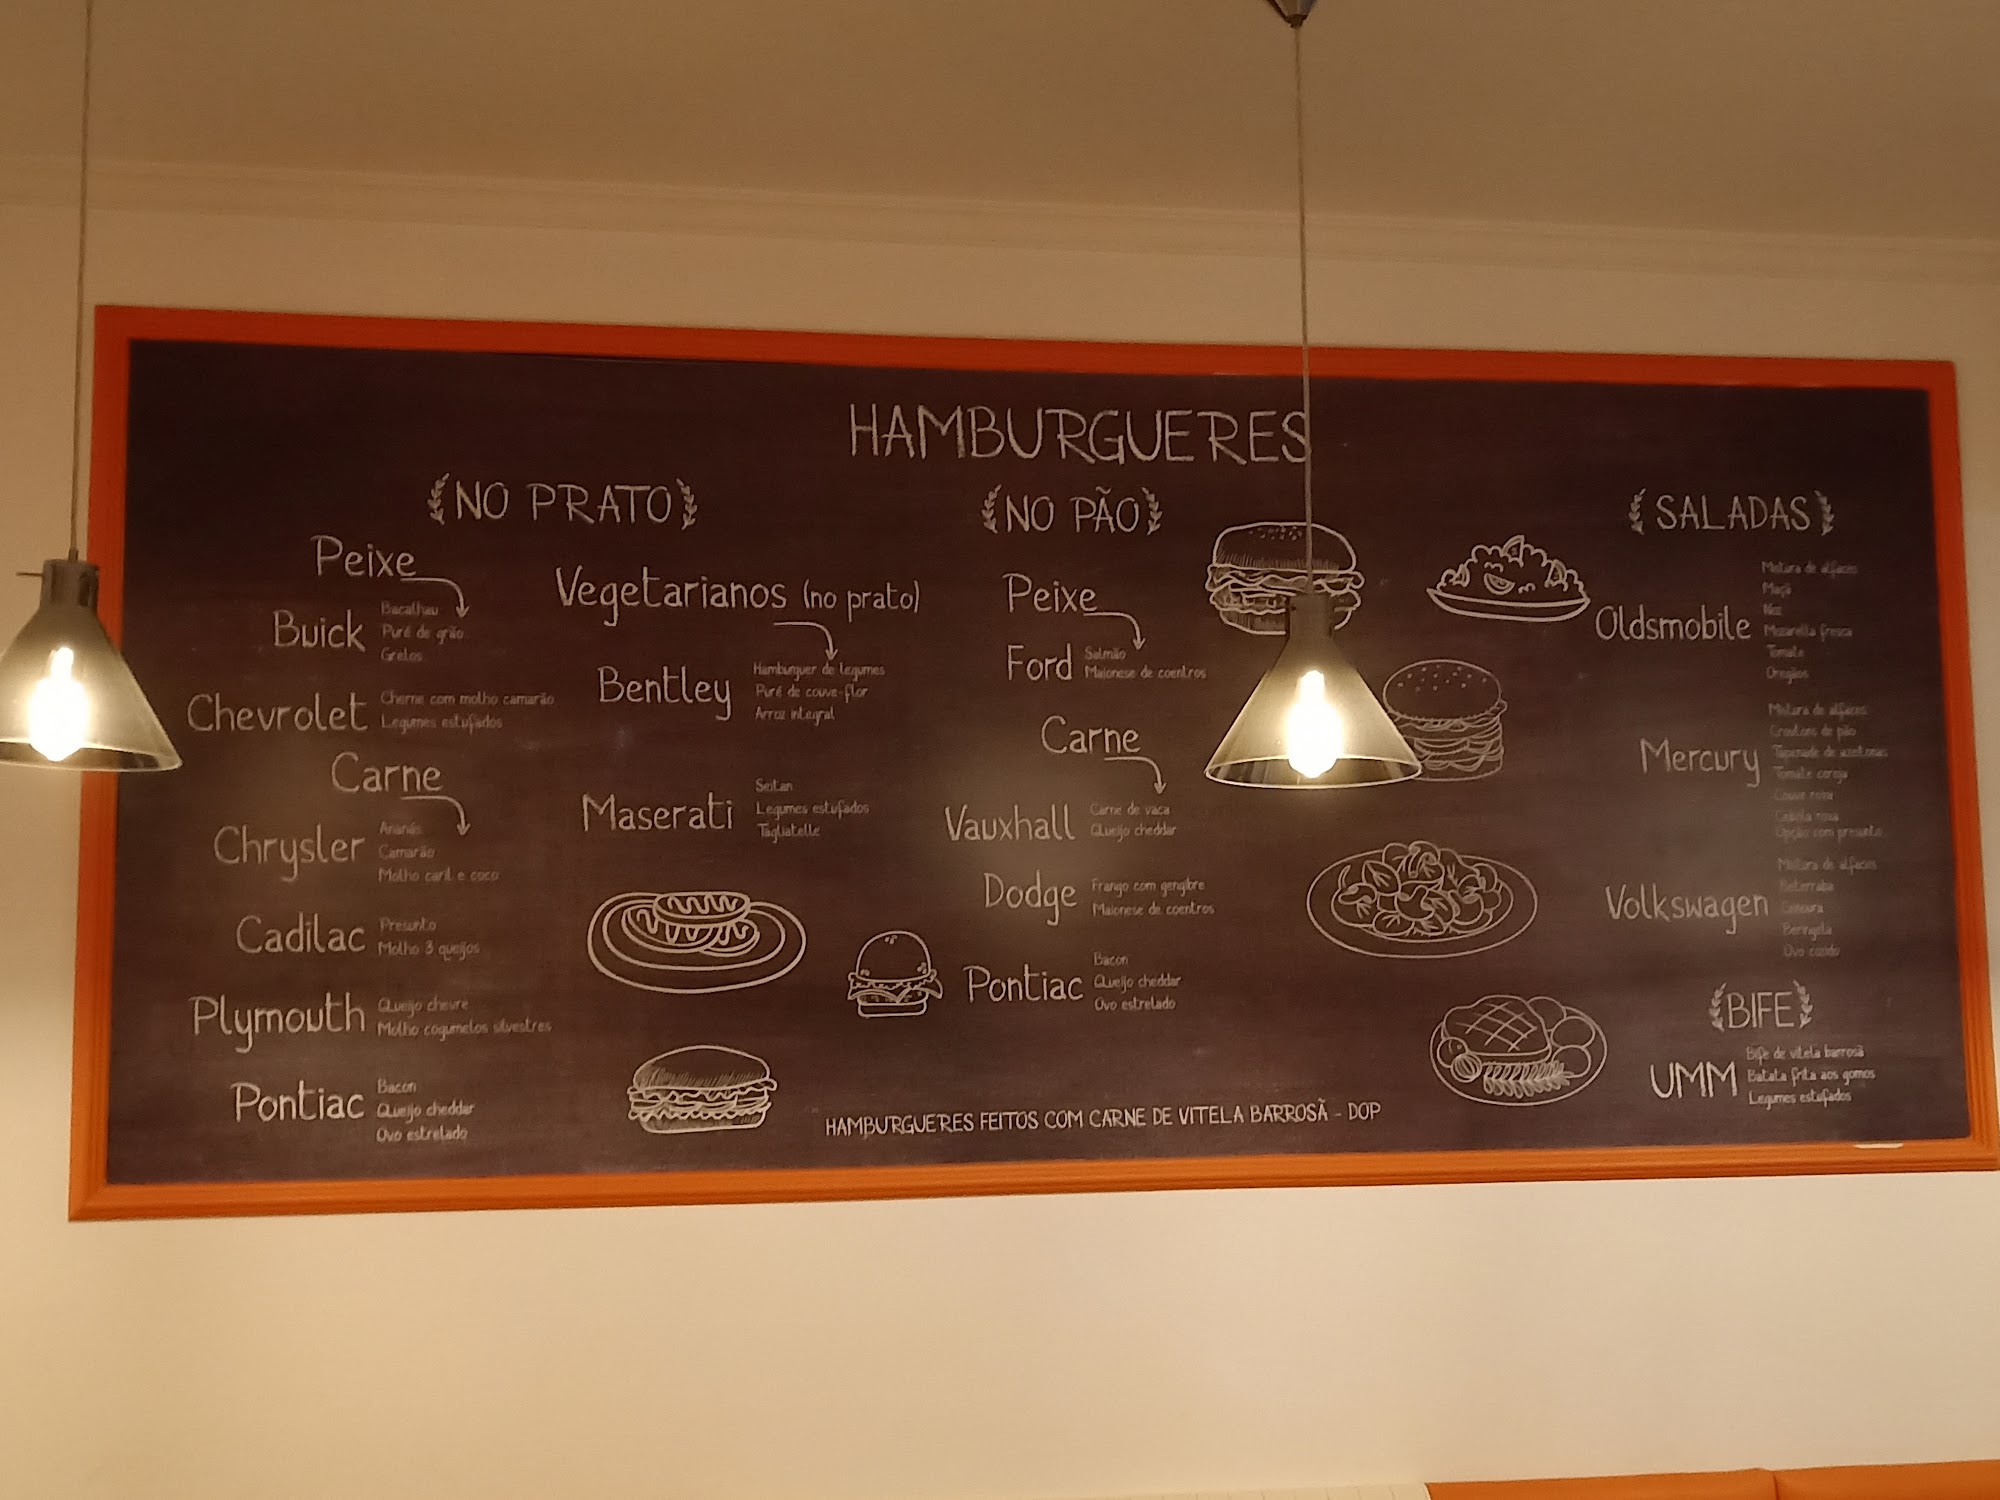 HAMBURGUERES
NO PRATO
Peixe
Buick
Bacalhau
Puré de grão
Grelos
Chevrolet
Cherne com molho camarão
Legumes estufados
Carne
Chrysler
Ananás
Camarão
Molho caril e coco
Cadilac
Presunto
Molho 3 queijos
Plymouth
Queijo chevre
Molho cogumelos silvestres
Pontiac
Bacon
Queijo cheddar
Ovo estrelado
Vegetarianos (no prato)
Bentley
Hamburguer de legumes
Puré de couve-flor
Arroz integral
Maserati
Seitan
Legumes estufados
Tagliatelle
NO PÃO
Peixe
Ford
Salmão
Maionese de coentros
Carne
Vauxhall
Carne de vaca
Queijo cheddar
Dodge
Frango com gengibre
Maionese de coentros
Pontiac
Bacon
Queijo cheddar
Ovo estrelado
SALADAS
Oldsmobile
Mistura de alfaces
Maçã
Noz
Mozarella fresca
Tomate
Oregãos
Mercury
Mistura de alfaces
Croutons de pão
Tapenade de azeitonas
Tomate cereja
Couve roxa
Cebola roxa
Opção com presunto
Volkswagen
Mistura de alfaces
Beterraba
Cenoura
Beringela
Ovo cozido
BIFE
UMM
Bife de vitela barrosã
Batata frita aos gomos
Legumes estufados
HAMBURGUERES FEITOS COM CARNE DE VITELA BARROSÃ - DOP